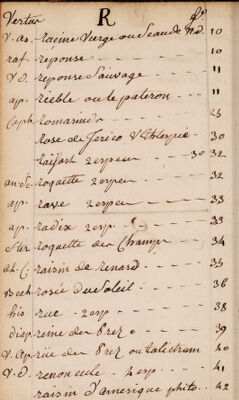 Vertus R fo
V.as. racine vierge ou Sceau de n.d. 10
raf. reponse 10
V.d. reponse Sauvage 11
ap. rieble ou le pateron 11
Ceph. romarin 25
Rose de Jerico 32
raifort 2 especes 30 32
roquette 2 esp 32
ap. rave 2 espec 33
ap. radix 2 esp. 33
Ster. roquette des Champs 34
raisin de renard 35
Bech. rosée du Soleil 36
his. rue 2 esp 38
diap. reine des Prez 39
V.ap. rue des Prez ou talictrum 40
V.d. renoncule 4 esp. 41
raisin d'amerique phito 42